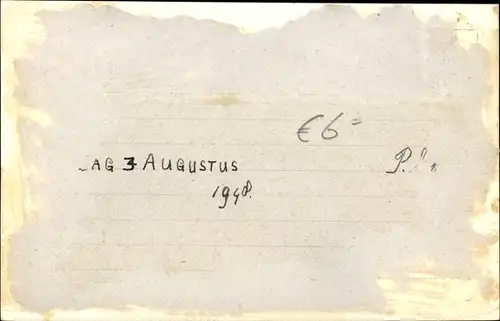 €6=
AG 3 AUGUSTUS
1948.